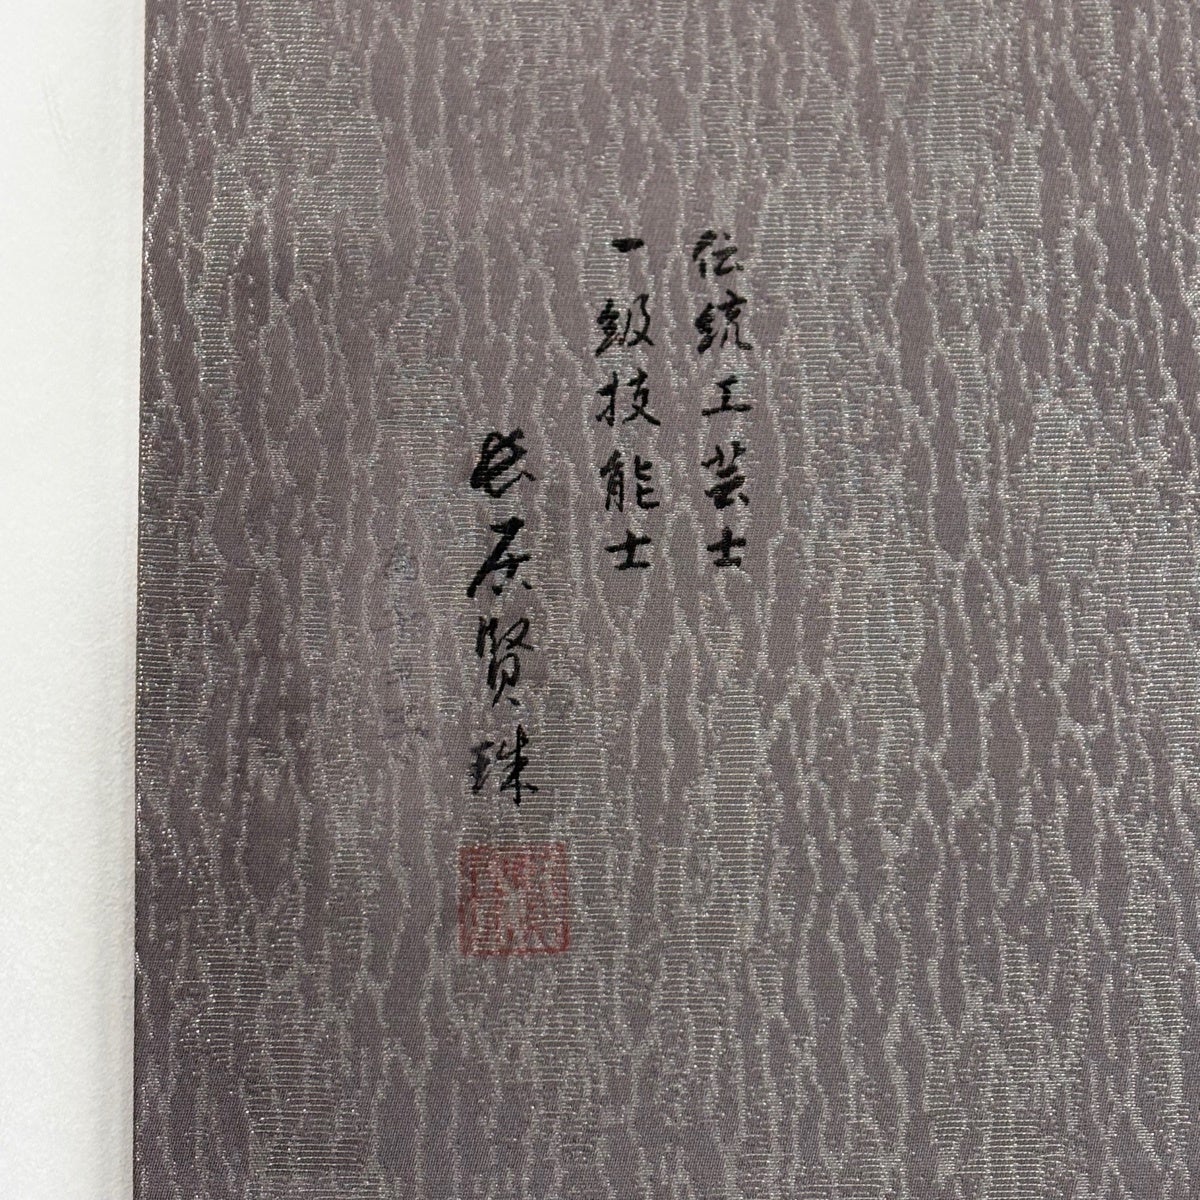 伝統工芸士
一級技能士
長居賢珠